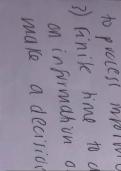 to process
3) Finite time to
on information
make a decision